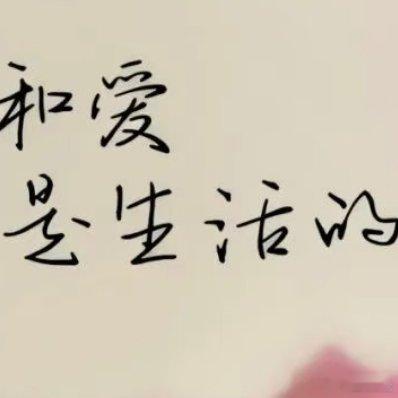 和爱
是生活的